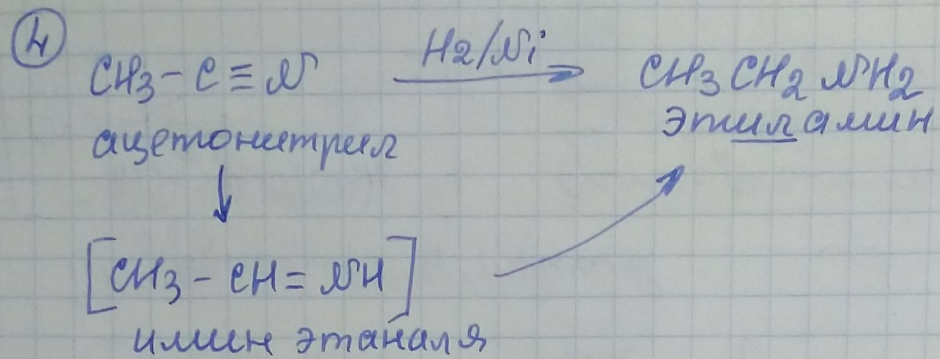 4
CH3-C≡N H2/Ni CH3CH2NH2
ацетонитрил этиламин
[CH3-CH=NH]
имин этаналя